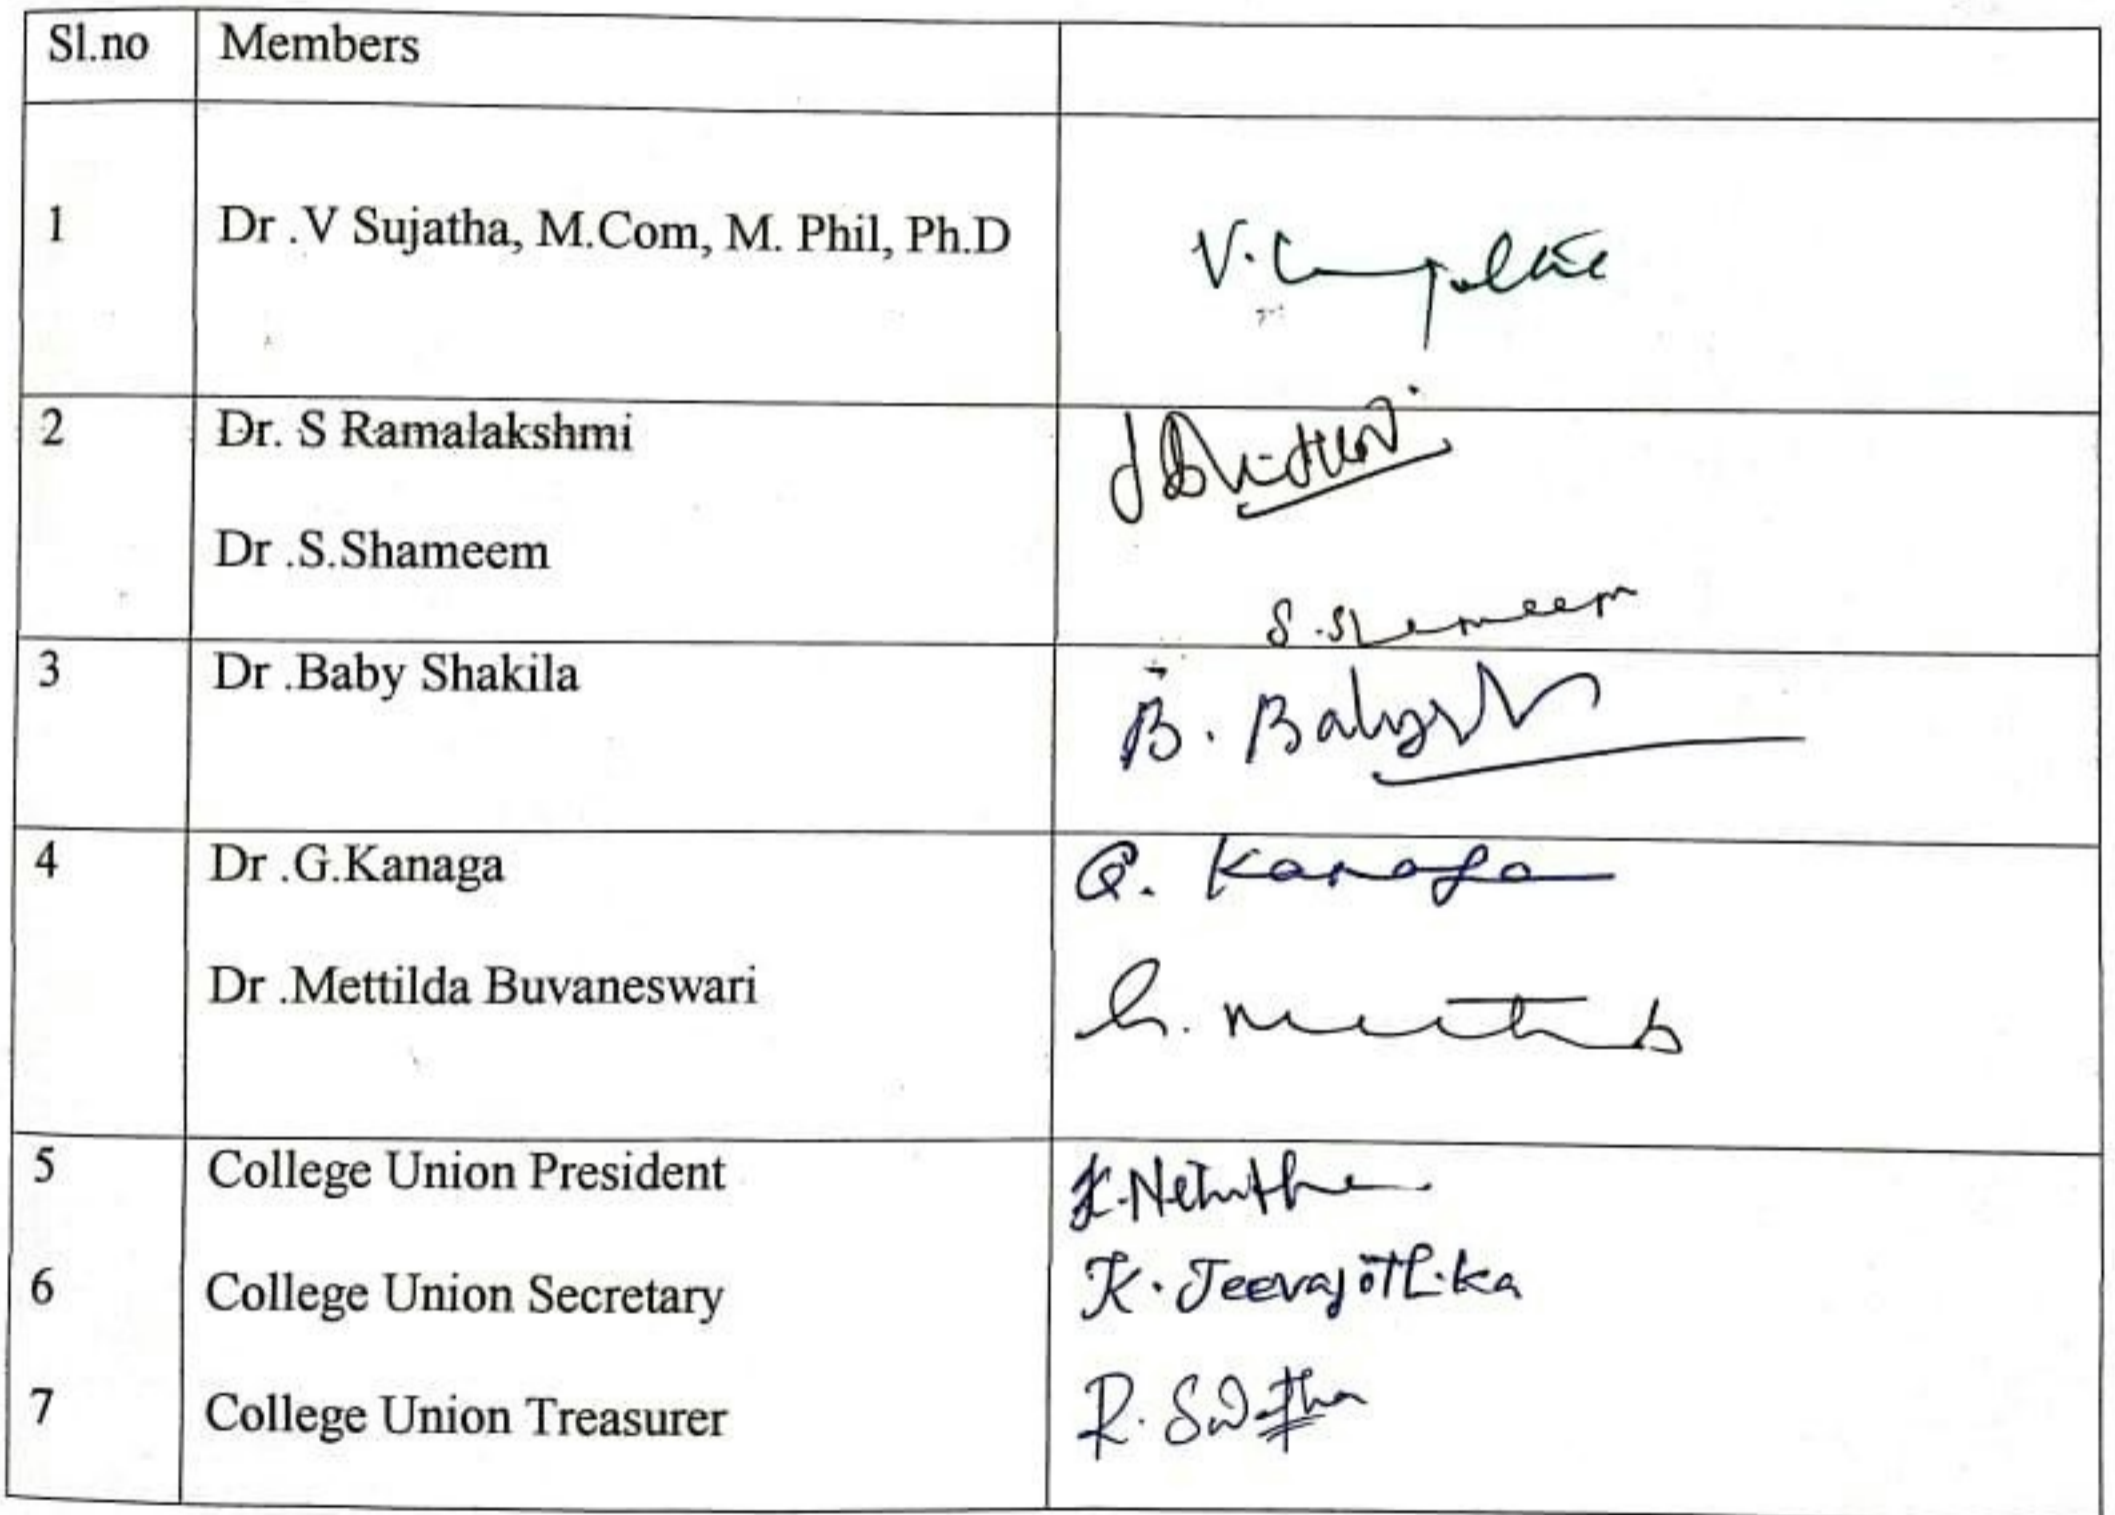 Sl.no Members
1 Dr .V Sujatha, M.Com, M. Phil, Ph.D V.
2 Dr. S Ramalakshmi
Dr .S.Shameem S.Shameem
3 Dr .Baby Shakila B. Baby
4 Dr .G.Kanaga G. Kanaga
Dr .Mettilda Buvaneswari
5 College Union President K.
6 College Union Secretary K. Jeevajothika
7 College Union Treasurer R. Swetha